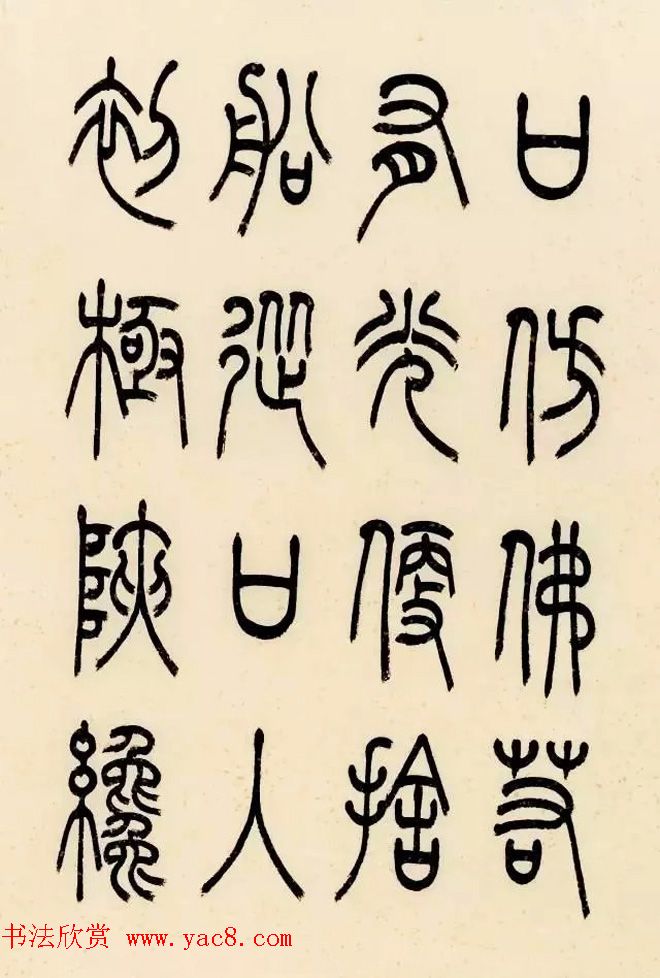 口仿佛若
有光便舍
船從口入
初極陝纔
书法欣赏 www.yac8.com